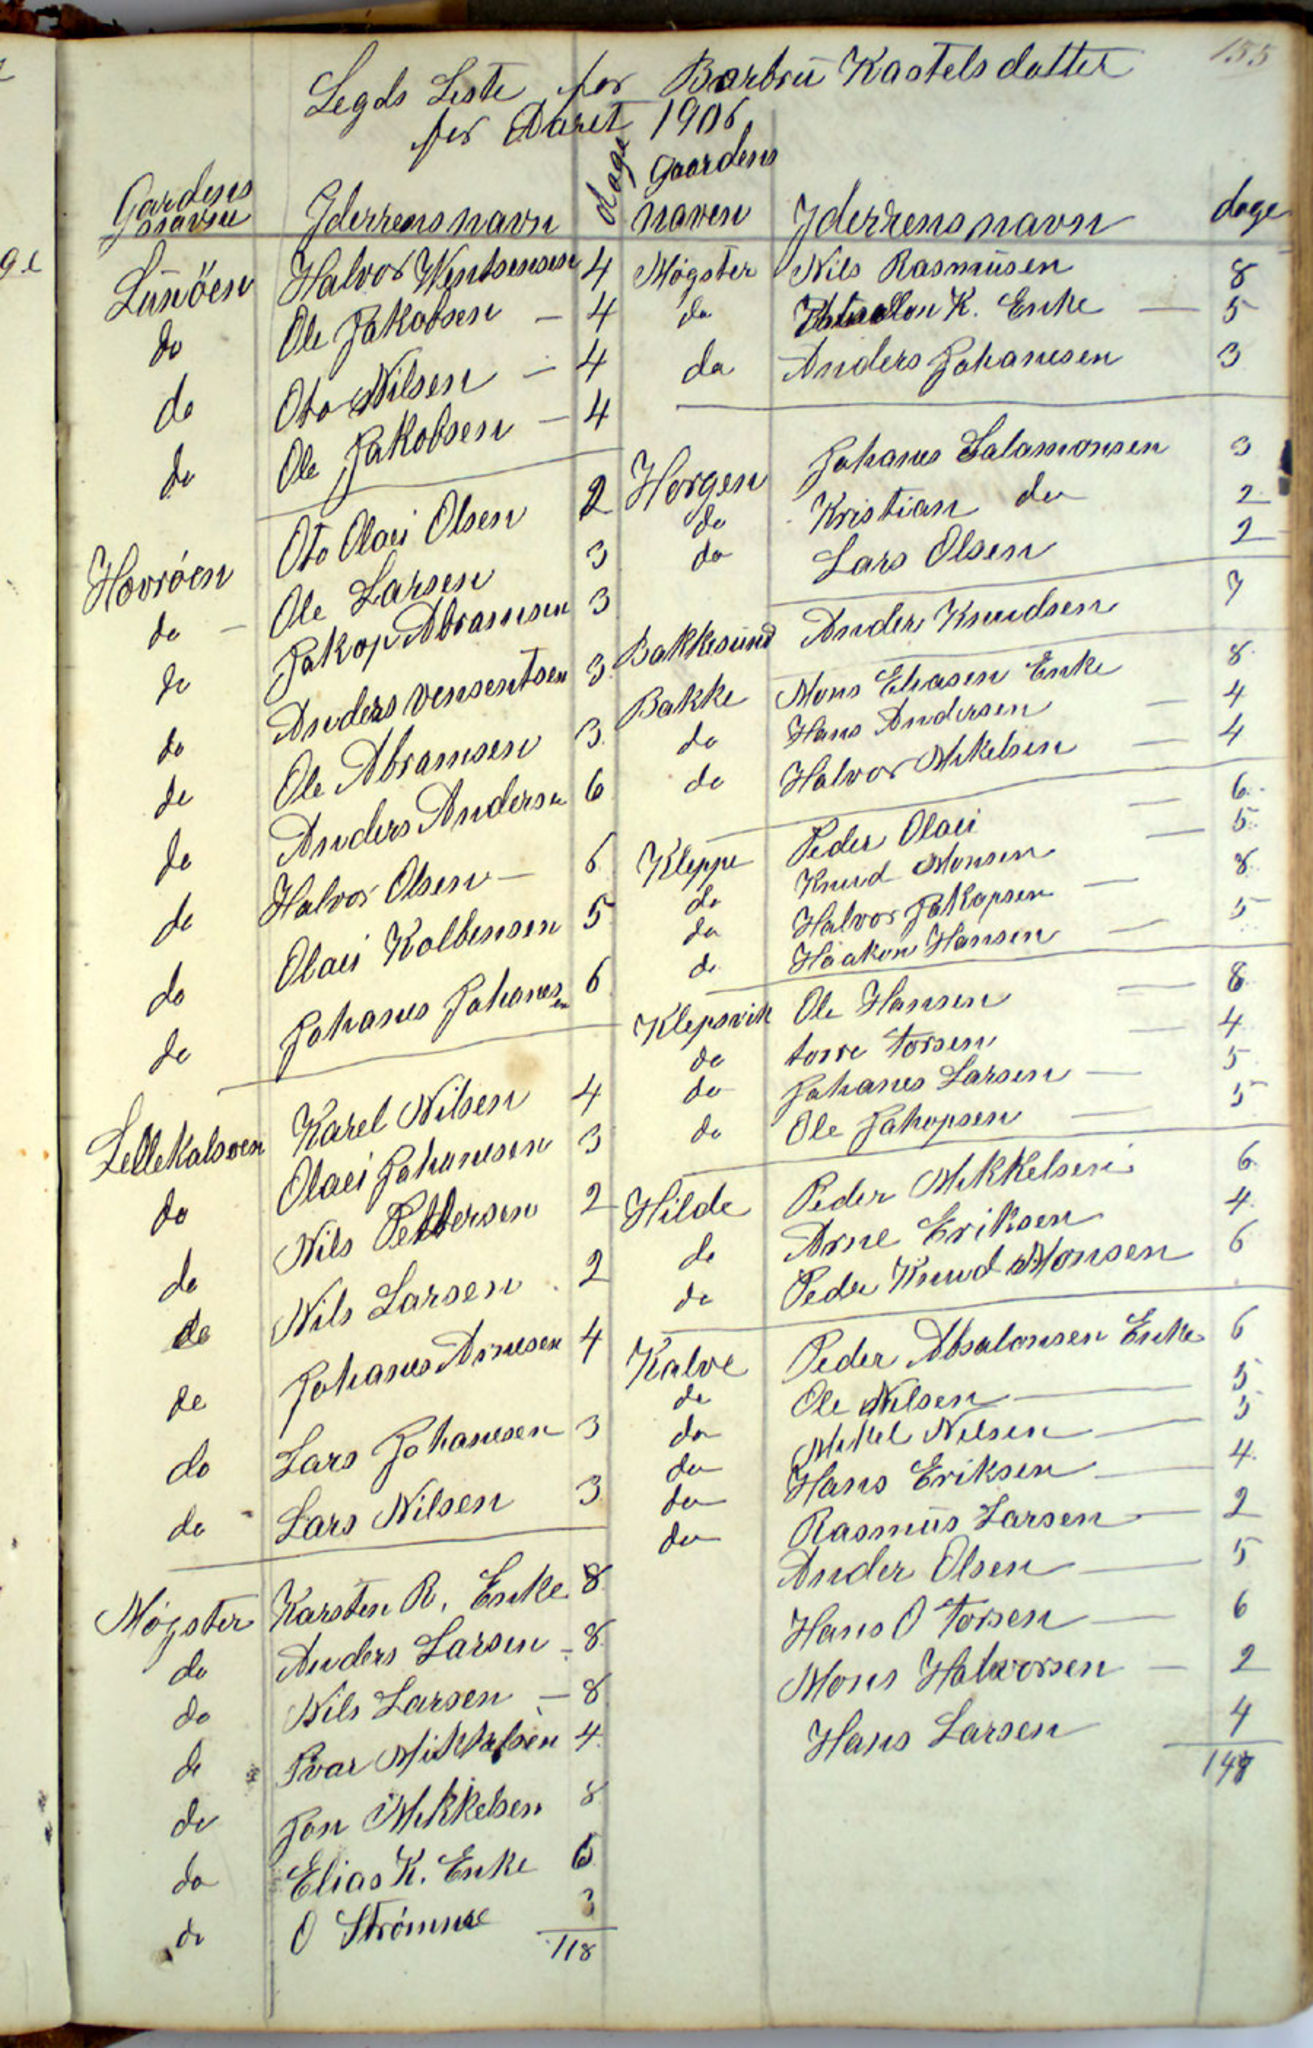 155
Legds Liste for Barbru Kastelsdatter
for Aaret 1906
Gardens navn Yderrens navn dage
Lunöen Halvor Wintsensen 4
do Ole Jakobsen - 4
do Oto Nilsen - 4
do Ole Jakobsen - 4
Hovröen Oto Olai Olsen 2
do - Ole Larsen 3
do Jakop Abramsen 3
do Anders vensentsen 3
do Ole Abramsen 3
do Anders Andersn 6
do Halvor Olsen - 6
do Olai Kolbensen 5
do Johanes Johanesen 6
Lellekalsoen Karel Nilsen 4
do Olaei Johanesen 3
do Nils Pettersen 2
do Nils Larsen 2
do Johanes Arnesen 4
do Lars Johanesen 3
do Lars Nilsen 3
Møgster Karsten R. Enke 8
do Anders Larsen - 8
do Nils Larsen - 8
do Ivar Mikkelsen 4
do Jon Mikkelsen 8
do Elias K. Enke 6
do O Strømme 3
118
Gaardens naven Yderrens navn dage
Møgster Nils Rasmusen 8
do K. Enke - 5
do Anders Johanesen 3
Horgen Johanes Salamonsen 3
do Kristian do 2
do Lars Olsen 2
Bakkesund Anders Knudsen 7
Bakke Mons Eliasen Enke 8
do Hans Andersen - 4
do Halvor Mikelsen - 4
Kleppe Peder Olai - 6
do Knud Monsen - 5
do Halvor Jakopsen - 8
do Haakon Hansen - 5
Klepsvik Ole Hansen - 8
do torre torsen - 4
do Johanes Larsen - 5
do Ole Jakopsen - 5
Hilde Peder Mikkelsen 6
do Arne Eriksen 4
do Peder Knud Monsen 6
Kalve Peder Absalonsen Enke 6
do Ole Nilsen - 5
do Mikel Nilsen - 5
do Hans Eriksen - 4
do Rasmus Larsen - 2
do Ander Olsen - 5
Hans O torsen - 6
Mons Halvorsen - 2
Hans Larsen 4
148